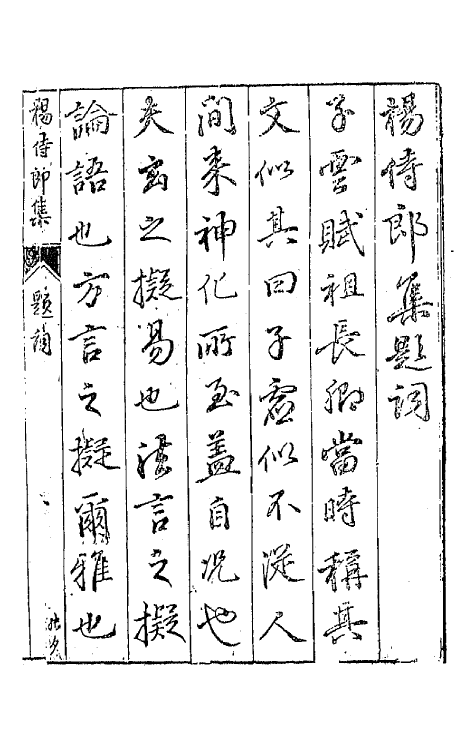 楊侍郎集題詞
子雲賦祖長卿當時稱其
文似其曰子虛似不從人
間來神化所至蓋自况也
夫玄之擬易也法言之擬
論語也方言之擬爾雅也
楊侍郎集
題詞